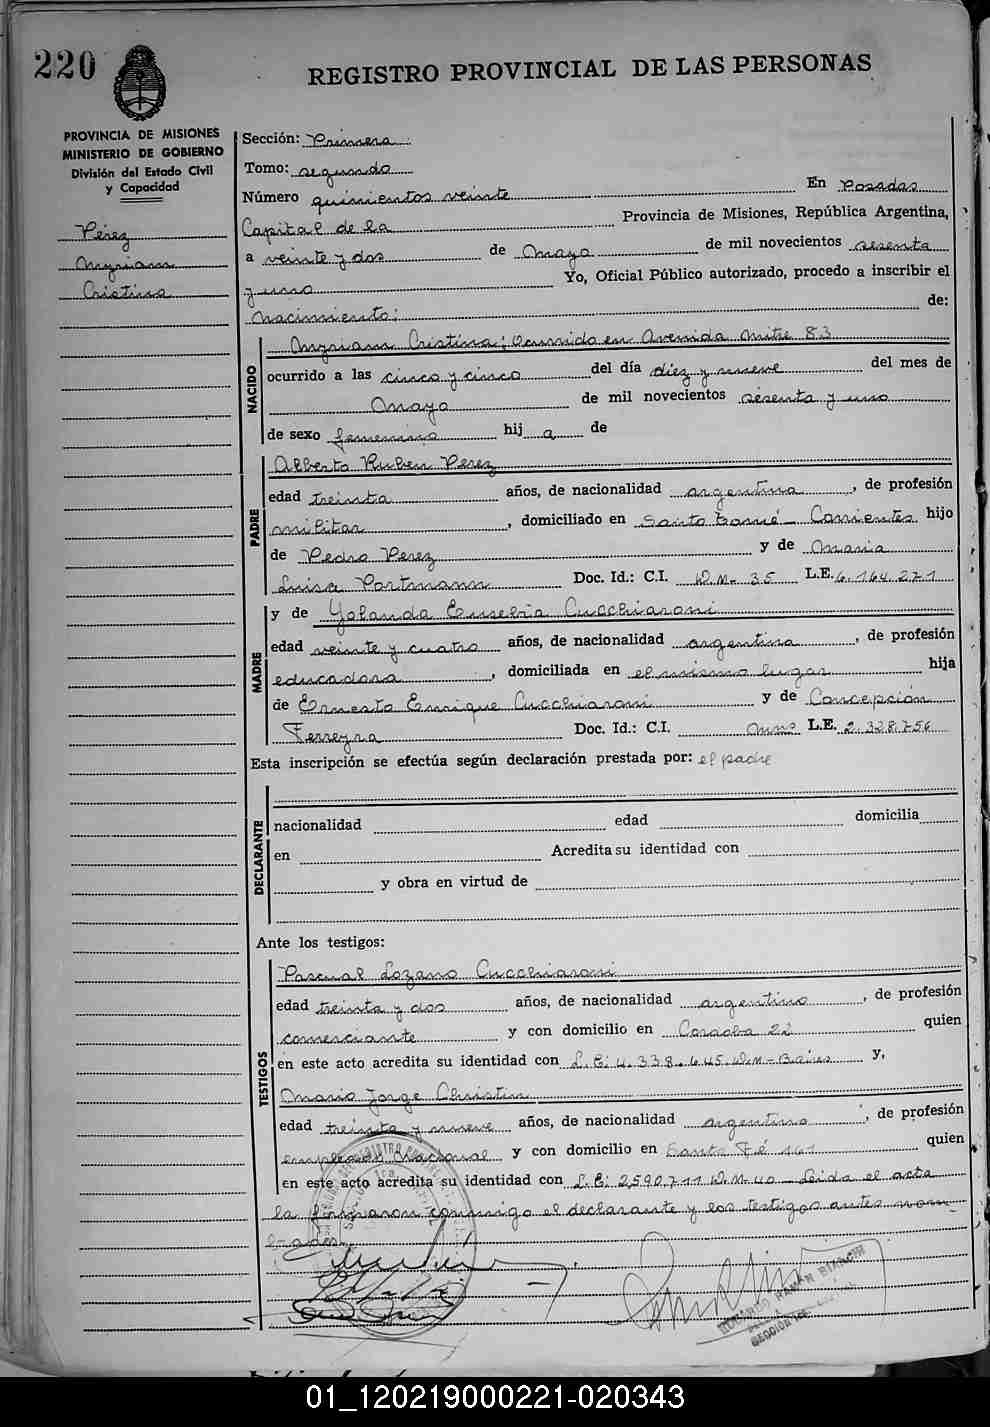 220
REGISTRO PROVINCIAL DE LAS PERSONAS
PROVINCIA DE MISIONES
MINISTERIO DE GOBIERNO
División del Estado Civil
y Capacidad
Pérez
Myriam
Cristina
Sección: Primera
Tomo: segundo
Número quinientos veinte En Posadas
Capital de la Provincia de Misiones, República Argentina,
a veinte y dos de Mayo de mil novecientos sesenta
y uno Yo, Oficial Público autorizado, procedo a inscribir el
Nacimiento: de:
NACIDO
Myriam Cristina; Ocurrido en Avenida Mitre 83
ocurrido a las cinco y cinco del día diez y nueve del mes de
Mayo de mil novecientos sesenta y uno
de sexo femenino hij a de
PADRE
Alberto Ruben Perez
edad treinta años, de nacionalidad argentina, de profesión
militar, domiciliado en Santo Tomé - Corrientes hijo
de Pedro Perez y de Maria
Luisa Portmann Doc. Id.: C.I. D.M. 35 L.E. 6.164.271
MADRE
y de Yolanda Eusebia Cucchiaroni
edad veinte y cuatro años, de nacionalidad argentina, de profesión
educadora, domiciliada en el mismo lugar hija
de Ernesto Enrique Cucchiaroni y de Concepción
Ferreyra Doc. Id.: C.I. Mnes L.E. 2.328.756
Esta inscripción se efectúa según declaración prestada por: el padre
DECLARANTE
nacionalidad edad domicilia
en Acredita su identidad con
y obra en virtud de
Ante los testigos:
TESTIGOS
Pascual Lozano Cucchiaroni
edad treinta y dos años, de nacionalidad argentino, de profesión
comerciante y con domicilio en Cordoba 22 quien
en este acto acredita su identidad con L.E: 4.338.645. D.M - Baires y,
Mario Jorge Christin
edad treinta y nueve años, de nacionalidad argentino, de profesión
empleado Nacional y con domicilio en Santa Fé 161 quien
en este acto acredita su identidad con L.E: 2590711 D.M. 40 - Leida el acta
la firmaron conmigo el declarante y los testigos antes nom-
brados.
RAMON BIANCHI
SECCION
01_120219000221-020343